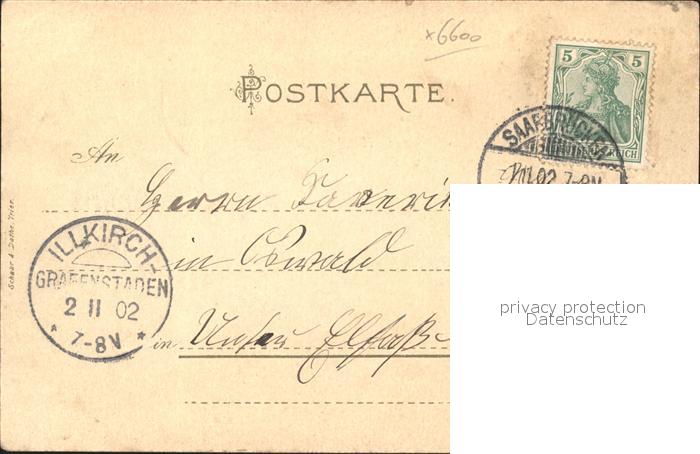 x6600
POSTKARTE.
5 5
REICH
SAARBRÜCKEN
02 7-8N
An
Herrn
in Ostwald
in Unter Elsaß
ILLKIRCH-
GRAFENSTADEN
2 II 02
* 7-8V *
Schaar & Dathe, Trier.
privacy protection
Datenschutz